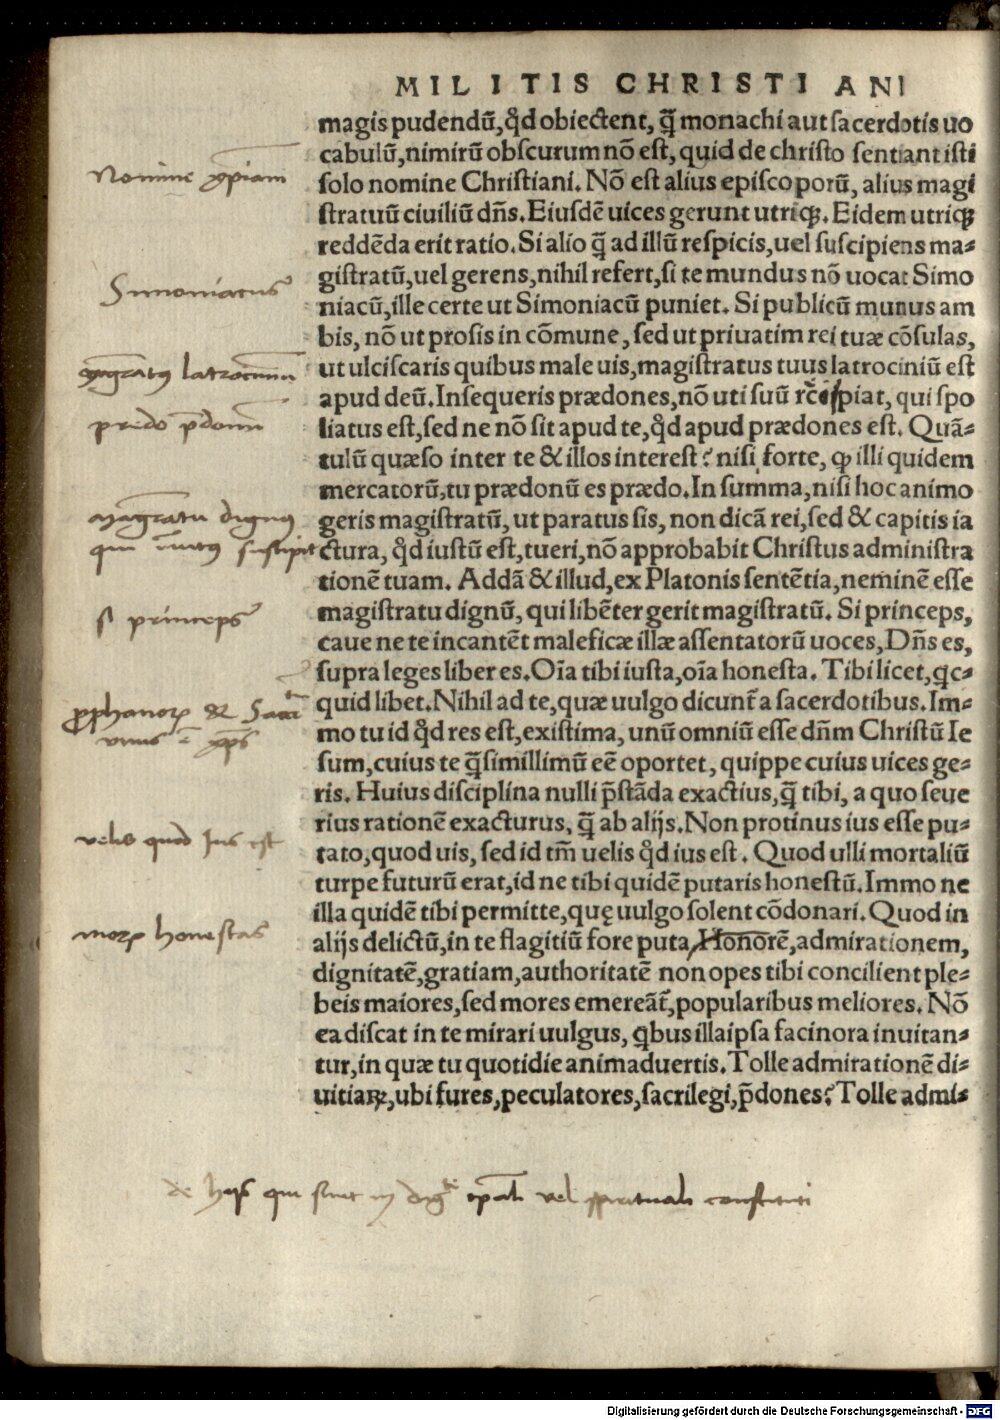 MILITIS CHRISTIANI
magis pudendū, ꝙd obiectent, q̄ monachi aut sacerdotis uo
cabulū, nimirū obscurum nō est, quid de christo sentiant isti
Nomine xp̄iani
solo nomine Christiani. Nō est alius episcoporū, alius magi
stratuū ciuiliū dn̄s. Eiusdē uices gerunt utriqꝫ. Eidem utriqꝫ
reddēda erit ratio. Si alio q̄ ad illū respicis, uel suscipiens ma⸗
gistratū, uel gerens, nihil refert, si te mundus nō uocat Simo
Simoniacus
niacū, ille certe ut Simoniacū puniet. Si publicū munus am
bis, nō ut prosis in cōmune, sed ut priuatim rei tuæ cōsulas,
ut ulciscaris quibus male uis, magistratus tuus latrociniū est
magr̄atꝰ latrociniū
apud deū. Insequeris prædones, nō uti suū recipiat, qui spo
liatus est, sed ne nō sit apud te, ꝙd apud prædones est. Quā⸗
predo p̄donū
tulū quæso inter te & illos interest? nisi forte, ꝙ illi quidem
mercatorū, tu prædonū es prædo. In summa, nisi hoc animo
geris magistratū, ut paratus sis, non dicā rei, sed & capitis ia
magr̄atu dignꝰ
ctura, ꝙd iustū est, tueri, nō approbabit Christus administra
qui īuitꝰ suscipit
tionē tuam. Addā & illud, ex Platonis sentētia, neminē esse
magistratu dignū, qui libēter gerit magistratū. Si princeps,
si princeps
caue ne te incantēt maleficæ illæ assentatorū uoces, Dn̄s es,
supra leges liber es. Oīa tibi iusta, oīa honesta. Tibi licet, qc⸗
quid libet. Nihil ad te, quæ uulgo dicunt᷑ a sacerdotibus. Im⸗
prophanorꝝ & Sacr
mo tu id ꝙd res est, existima, unū omniū esse dn̄m Christū Ie
vnus ē xp̄s
sum, cuius te q̄simillimū eē oportet, quippe cuius uices ge⸗
ris. Huius disciplina nulli p̄stāda exactius, q̄ tibi, a quo seue
rius rationē exacturus, q̄ ab alijs. Non protinus ius esse pu⸗
velis quod Ius est
tato, quod uis, sed id tm̄ uelis ꝙd ius est. Quod ulli mortaliū
turpe futurū erat, id ne tibi quidē putaris honestū. Immo ne
illa quidē tibi permitte, quę uulgo solent cōdonari. Quod in
morꝝ honestas
alijs delictū, in te flagitiū fore puta, Honorē, admirationem,
dignitatē, gratiam, authoritatē non opes tibi concilient ple⸗
beis maiores, sed mores emereāt᷑, popularibus meliores. Nō
ea discat in te mirari uulgus, qbus illa ipsa facinora inuitan⸗
tur, in quæ tu quotidie animaduertis. Tolle admirationē di⸗
uitiaꝝ, ubi fures, peculatores, sacrilegi, p̄dones? Tolle admi⸗
de hijs qui sunt in digte tp̄ali vel spirituali constituti
Digitalisierung gefördert durch die Deutsche Forschungsgemeinschaft - DFG